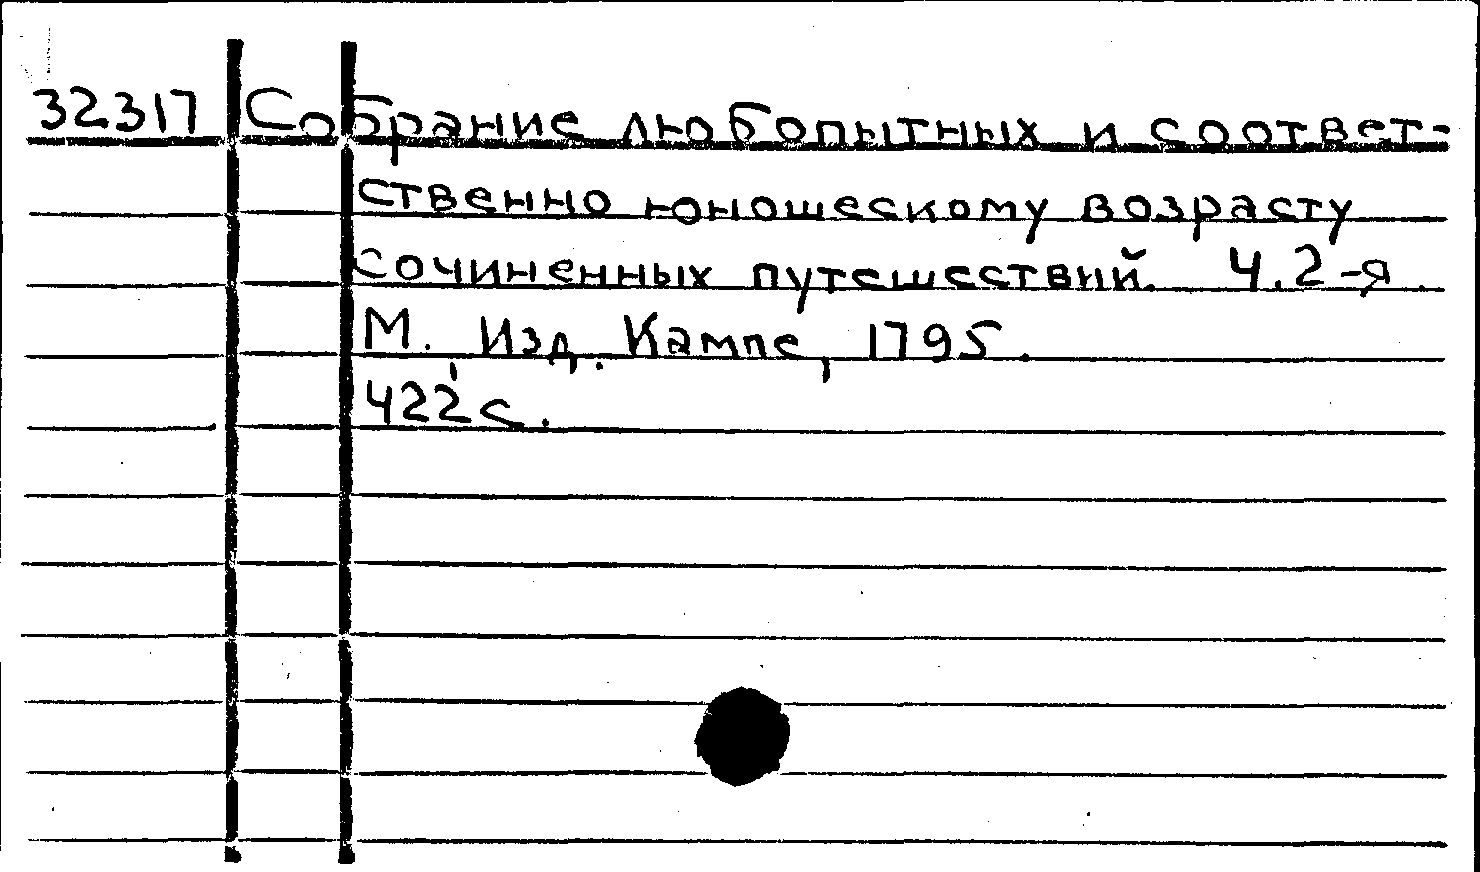 32317 Собрание любопытных и соответ-
ственно юношескому возрасту
сочиненных путешествий. Ч.2-я.
М., Изд. Кампе, 1795.
422 с.